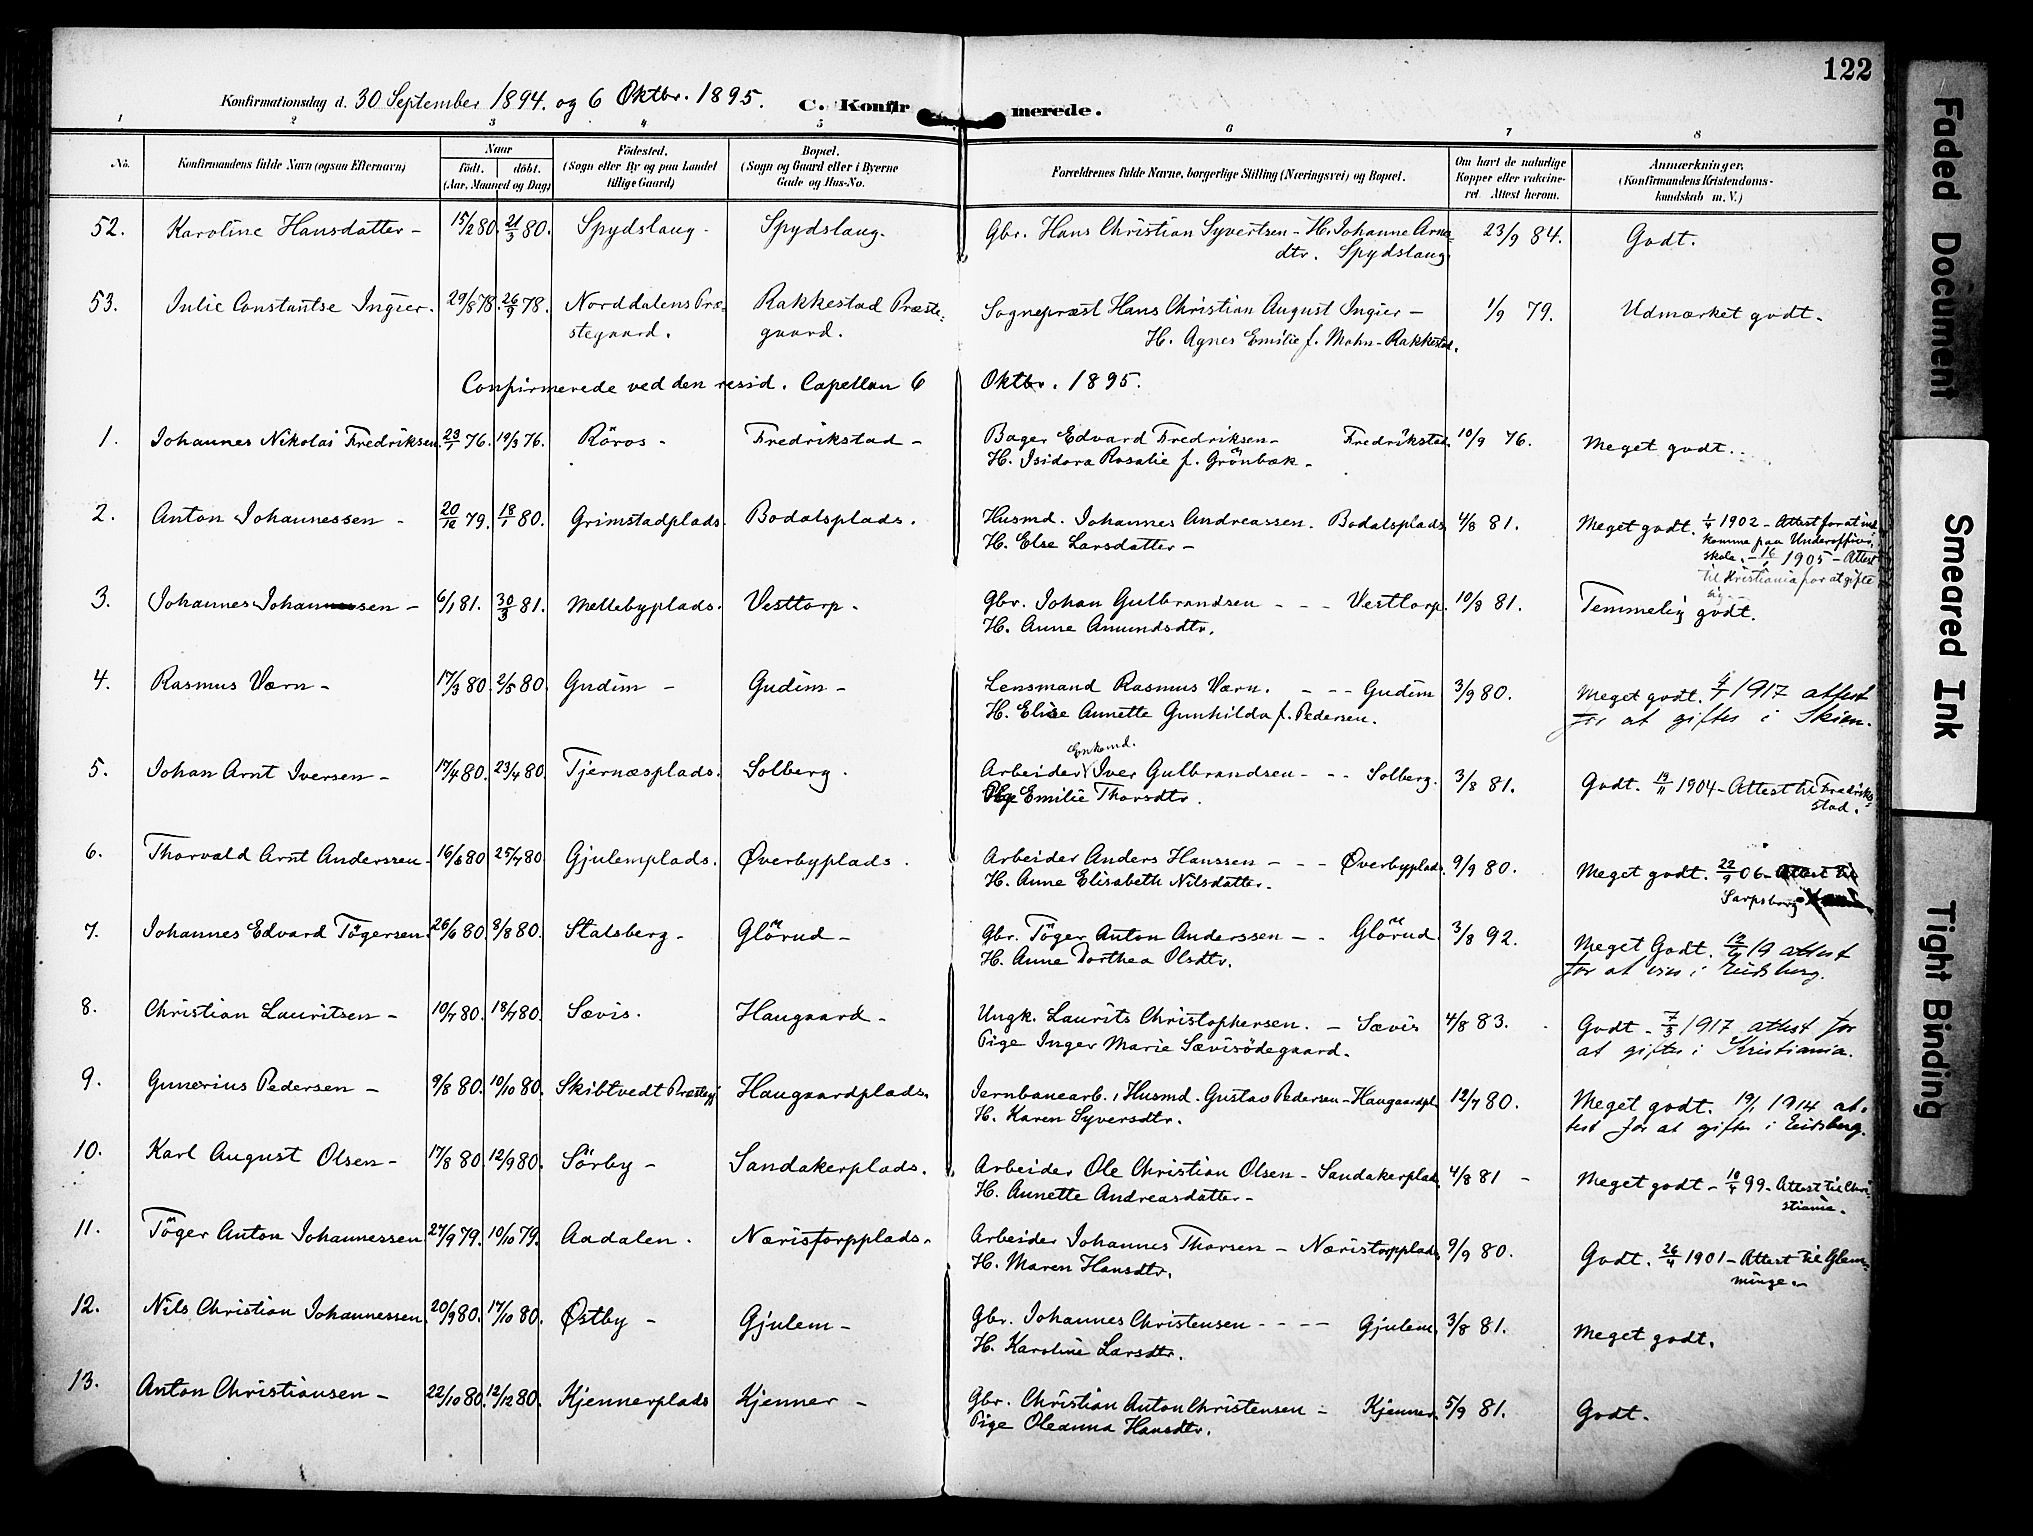 122
Konfirmationsdag d. 30 September 1894. og 6 Oktbr. 1895. C. Konfirmerede.
1 2 3 4 5 6 7 8
No. Konfirmandens fulde Navn (ogsaa Efternavn) Naar Födt. döbt. (Aar, Maaned og Dag) Födested. (Sogn eller By og paa Landet tillige Gaard) Bopæl. (Sogn og Gaard eller i Byerne Gade og Hus-No. Forældrenes fulde Navne, borgerlige Stilling (Næringsvei) og Bopæl. Om havt de naturlige Kopper eller vakcineret. Attest herom. Anmærkninger, (Konfirmandens Kristendomskundskab m. V.)
52. Karoline Hansdatter - 15/2 80. 21/3 80. Spydslaug - Spydslaug. Gbr. Hans Christian Syvertsen - H. Johanne Arne- 23/9 84. Godt.
dtr. Spydslaug
53. Julie Constantse Ingier. 29/8 78. 26/9 78. Norddalens Præ- Rakkestad Præste- Sognepræst Hans Christian August Ingier - 1/9 79. Udmærket godt.
stegaard. gaard. H. Agnes Emilie f. Mohn - Rakkestad.
Confirmerede ved den resid. Capellan 6 Oktbr. 1895.
1. Johannes Nikolai Fredriksen. 23/1 76. 19/3 76. Röros - Fredrikstad - Bager Edvard Fredriksen - Fredrikstad. 10/9 76. Meget godt.
H. Isidora Rosalie f. Grönbæk -
2. Anton Johannessen - 20/12 79. 18/1 80. Grimstadplads. Bodalsplads. Husmd. Johannes Andreassen. Bodalsplads 4/8 81. Meget godt. 1/4 1902 - Attest for at ind-
H. Else Larsdatter - komme paa Underoffics.
skole. - 16/ 1905 - Attest
til Kristiania for at gifte
sig -
3. Johannes Johannessen - 6/1 81. 30/3 81. Mellebyplads. Vesttorp. Gbr. Johan Gulbrandsen - - - Vesttorp. 10/8 81. Temmelig godt.
H. Anne Amundsdtr.
4. Rasmus Værn - 17/3 80. 2/5 80. Gudim - Gudim - Lensmand Rasmus Værn. - - - Gudim 3/9 80. Meget godt. 4/7 1917 attest
H. Elise Annette Gunhilda f. Pedersen. for at giftes i Skien.
5. Johan Arnt Iversen - 17/4 80. 23/4 80. Tjernæsplads. Solberg. Arbeider Enkemd. Iver Gulbrandsen - - - Solberg. 3/8 81. Godt. 19/11 1904 - Attest til Fredrik-
Emilie Thorsdtr. stad.
6. Thorvald Arnt Anderssen - 16/6 80 25/7 80. Gjulemplads. Øverbyplads. Arbeider Anders Hanssen - - - Øverbyplads. 9/9 80. Meget godt. 22/9 06 - Attest til
H. Anne Elisabeth Nilsdatter. Sarpsborg
7. Johannes Edvard Tögersen. 26/6 80. 8/8 80. Stalsberg - Glörud - Gbr. Töger Anton Anderssen - - Glörud. 3/8 92. Meget Godt. 12/ 19 attest
H. Anne Dorthea Olsdtr. for at vies i Eidsberg.
8. Christian Lauritsen - 10/7 80. 18/7 80. Sævis. Haugaard - Ungk. Laurits Christophersen. - Sævis 4/8 83. Godt - 7/3 1917 attest for
Pige Inger Marie Sævisödegaard. at giftes i Kristiania.
9. Gunerius Pedersen - 9/8 80. 10/10 80. Skibtvedt Præstegj Haugaardplads. Jernbanearb., Husmd. Gustav Pedersen - Haugaardpl. 12/7 80. Meget godt. 19/1 1914 at-
H. Karen Syversdtr. test for at giftes i Eidsberg.
10. Karl August Olsen - 17/8 80. 12/9 80. Sörby - Sandakerplads. Arbeider Ole Christian Olsen - Sandakerplads 4/8 81 - Meget godt - 10/4 99 - Attest til Chri-
H. Annette Andreasdatter - stiania.
11. Töger Anton Johannessen 27/9 79. 10/10 79. Aadalen. Næristorpplads. Arbeider Johannes Thorsen - Næristorpplads 9/9 80. Godt. 26/4 1901 - Attest til Glem-
H. Maren Hansdtr. minge.
12. Nils Christian Johannessen. 20/9 80. 17/10 80. Østby - Gjulem - Gbr. Johannes Christensen - - - - Gjulem. 3/8 81. Meget godt.
H. Karoline Larsdtr.
13. Anton Christiansen - 22/10 80. 12/12 80. Kjennerplads Kjenner - Gbr. Christian Anton Christensen - Kjenner. 5/9 81. Godt.
Pige Oleanna Hansdtr.
Faded Document
Smeared Ink
Tight Binding